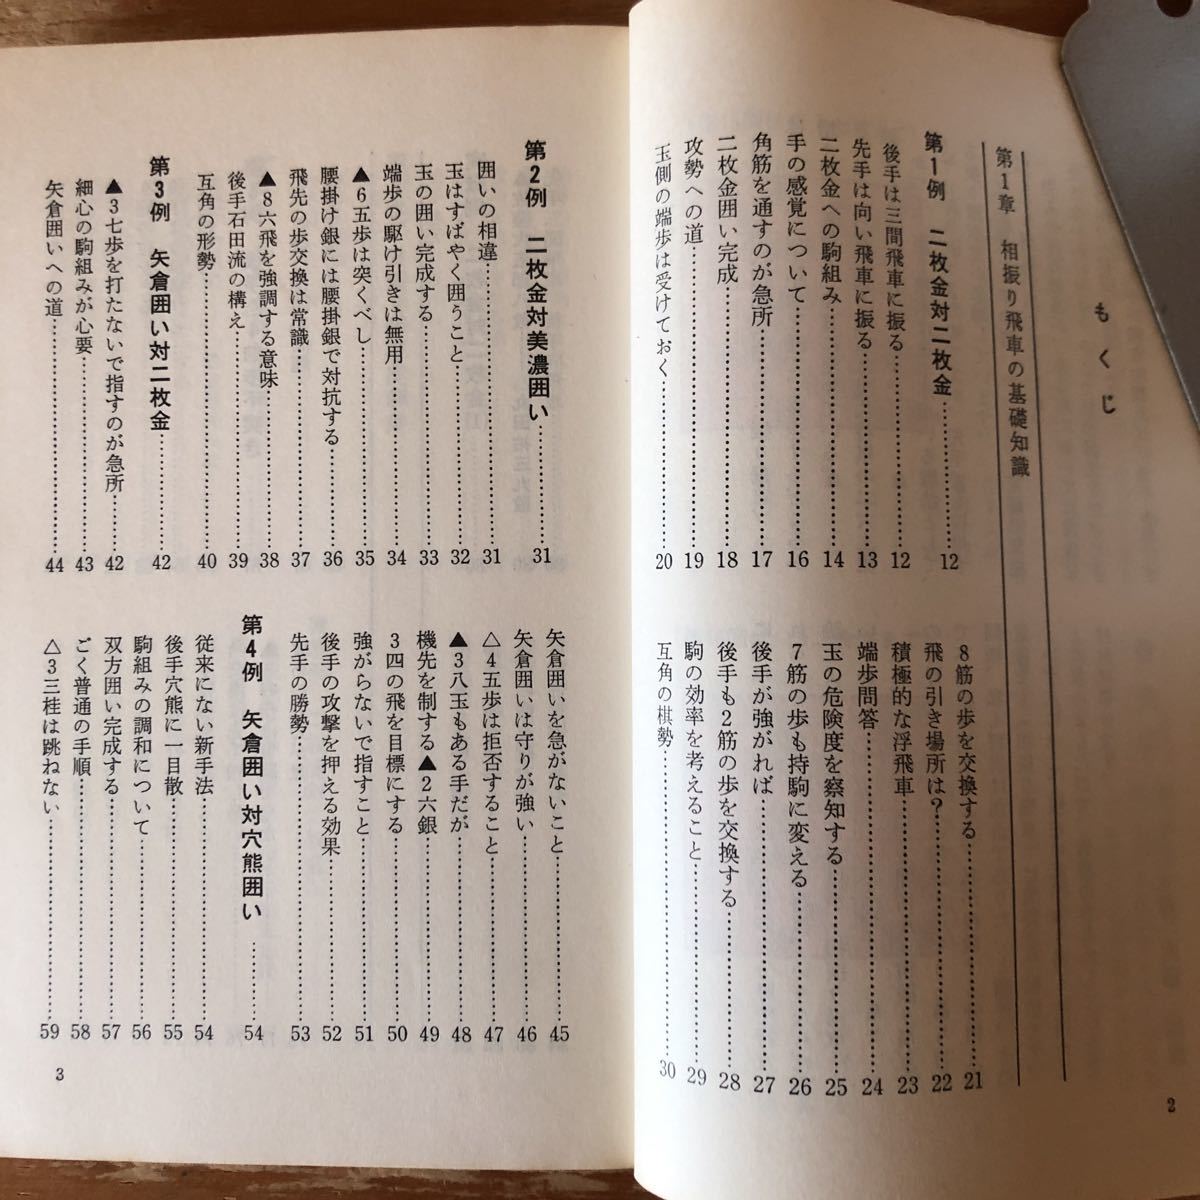 もくじ
第1章 相振り飛車の基礎知識
第1例 二枚金対二枚金……12
後手は三間飛車に振る……12
先手は向い飛車に振る……13
二枚金への駒組み……14
手の感覚について……16
角筋を通すのが急所……17
二枚金囲い完成……18
攻勢への道……19
玉側の端歩は受けておく……20
8筋の歩を交換する……21
飛の引き場所は?……22
積極的な浮飛車……23
端歩問答……24
玉の危険度を察知する……25
7筋の歩も持駒に変える……26
後手が強がれば……27
後手も2筋の歩を交換する……28
駒の効率を考えること……29
互角の棋勢……30
2
第2例 二枚金対美濃囲い……31
囲いの相違……31
玉はすばやく囲うこと……32
玉の囲い完成する……33
端歩の駆け引きは無用……34
▲6五歩は突くべし……35
腰掛け銀には腰掛銀で対抗する……36
飛先の歩交換は常識……37
▲8六飛を強調する意味……38
後手石田流の構え……39
互角の形勢……40
第3例 矢倉囲い対二枚金……42
▲3七歩を打たないで指すのが急所……42
細心の駒組みが心要……43
矢倉囲いへの道……44
矢倉囲いを急がないこと……45
矢倉囲いは守りが強い……46
△4五歩は拒否すること……47
▲3八玉もある手だが……48
機先を制する▲2六銀……49
3四の飛を目標にする……50
強がらないで指すこと……51
後手の攻撃を押える効果……52
先手の勝勢……53
第4例 矢倉囲い対穴熊囲い……54
従来にない新手法……54
後手穴熊に一目散……55
駒組みの調和について……56
双方囲い完成する……57
ごく普通の手順……58
△3三桂は跳ねない……59
3